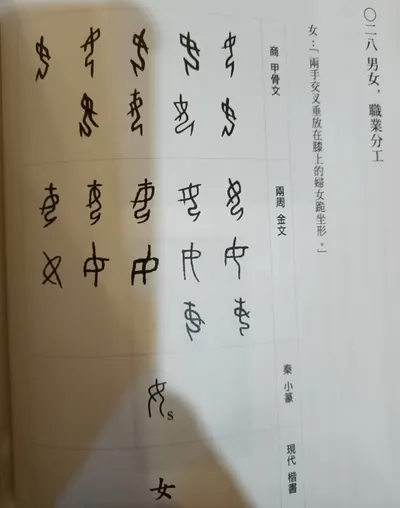 〇二八 男女，職業分工
女：「兩手交叉垂放在膝上的婦女跪坐形。」
商 甲骨文
兩周 金文
秦 小篆
S
現代 楷書
女